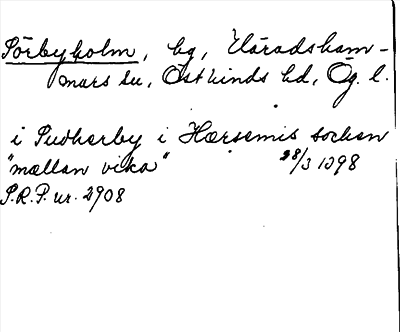 Sörbyholm, bg, Häradsham-
mars sn, Östkinds hd, Ög. l.
i Sudherby i Hærsemis sochan
"mællan vika" 28/3 1398
S.R.P. nr. 2908